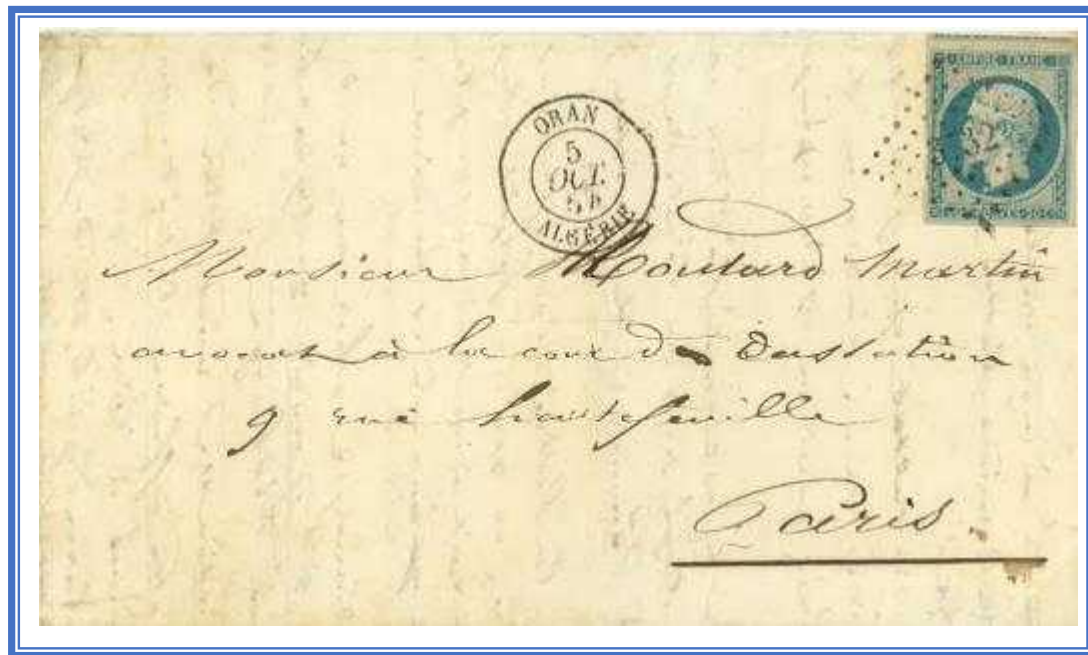 EMPIRE FRANC
ORAN
5
OCT.
54
ALGÉRIE
32
Monsieur Moulard Martin
avocat à la cour de Cassation
9 rue hautefeuille
Paris